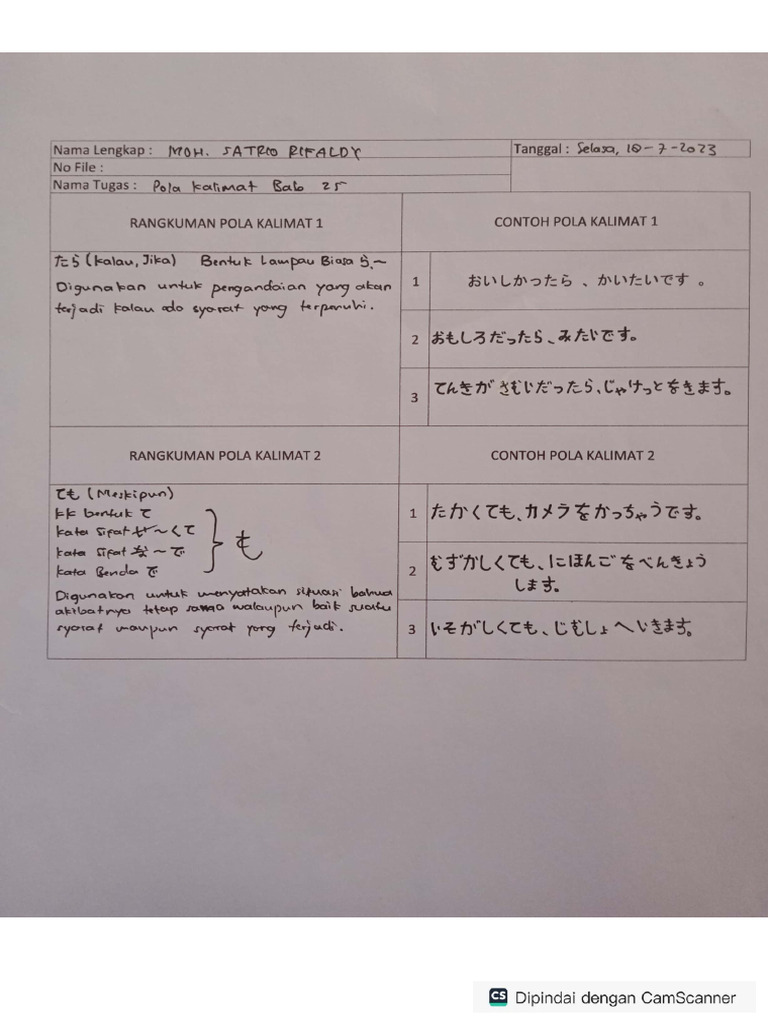 Nama Lengkap : MOH. SATRIO RIFALDY
Tanggal : Selasa, 18-7-2023
No File :
Nama Tugas : Pola Kalimat Bab 25
RANGKUMAN POLA KALIMAT 1
CONTOH POLA KALIMAT 1
たら (Kalau, Jika) Bentuk Lampau Biasa ら、~
Digunakan untuk pengandaian yang akan
terjadi kalau ado syarat yang terpenuhi.
1 おいしかったら 、かいたいです 。
2 おもしろだったら、みたいです。
3 てんきが さむいだったら、じゃけっとをきます。
RANGKUMAN POLA KALIMAT 2
CONTOH POLA KALIMAT 2
ても (Meskipun)
KK bentuk て
Kata Sifat い~くて
Kata Sifat な~で
Kata Benda で
} も
Digunakan untuk menyatakan situasi bahwa
akibatnya tetap sama walaupun baik suatu
syarat maupun syarat yang terjadi.
1 たかくても、カメラをかっちゃうです。
2 むずかしくても、にほんごをべんきょう
します。
3 いそがしくても、じむしょへいきます。
CS Dipindai dengan CamScanner